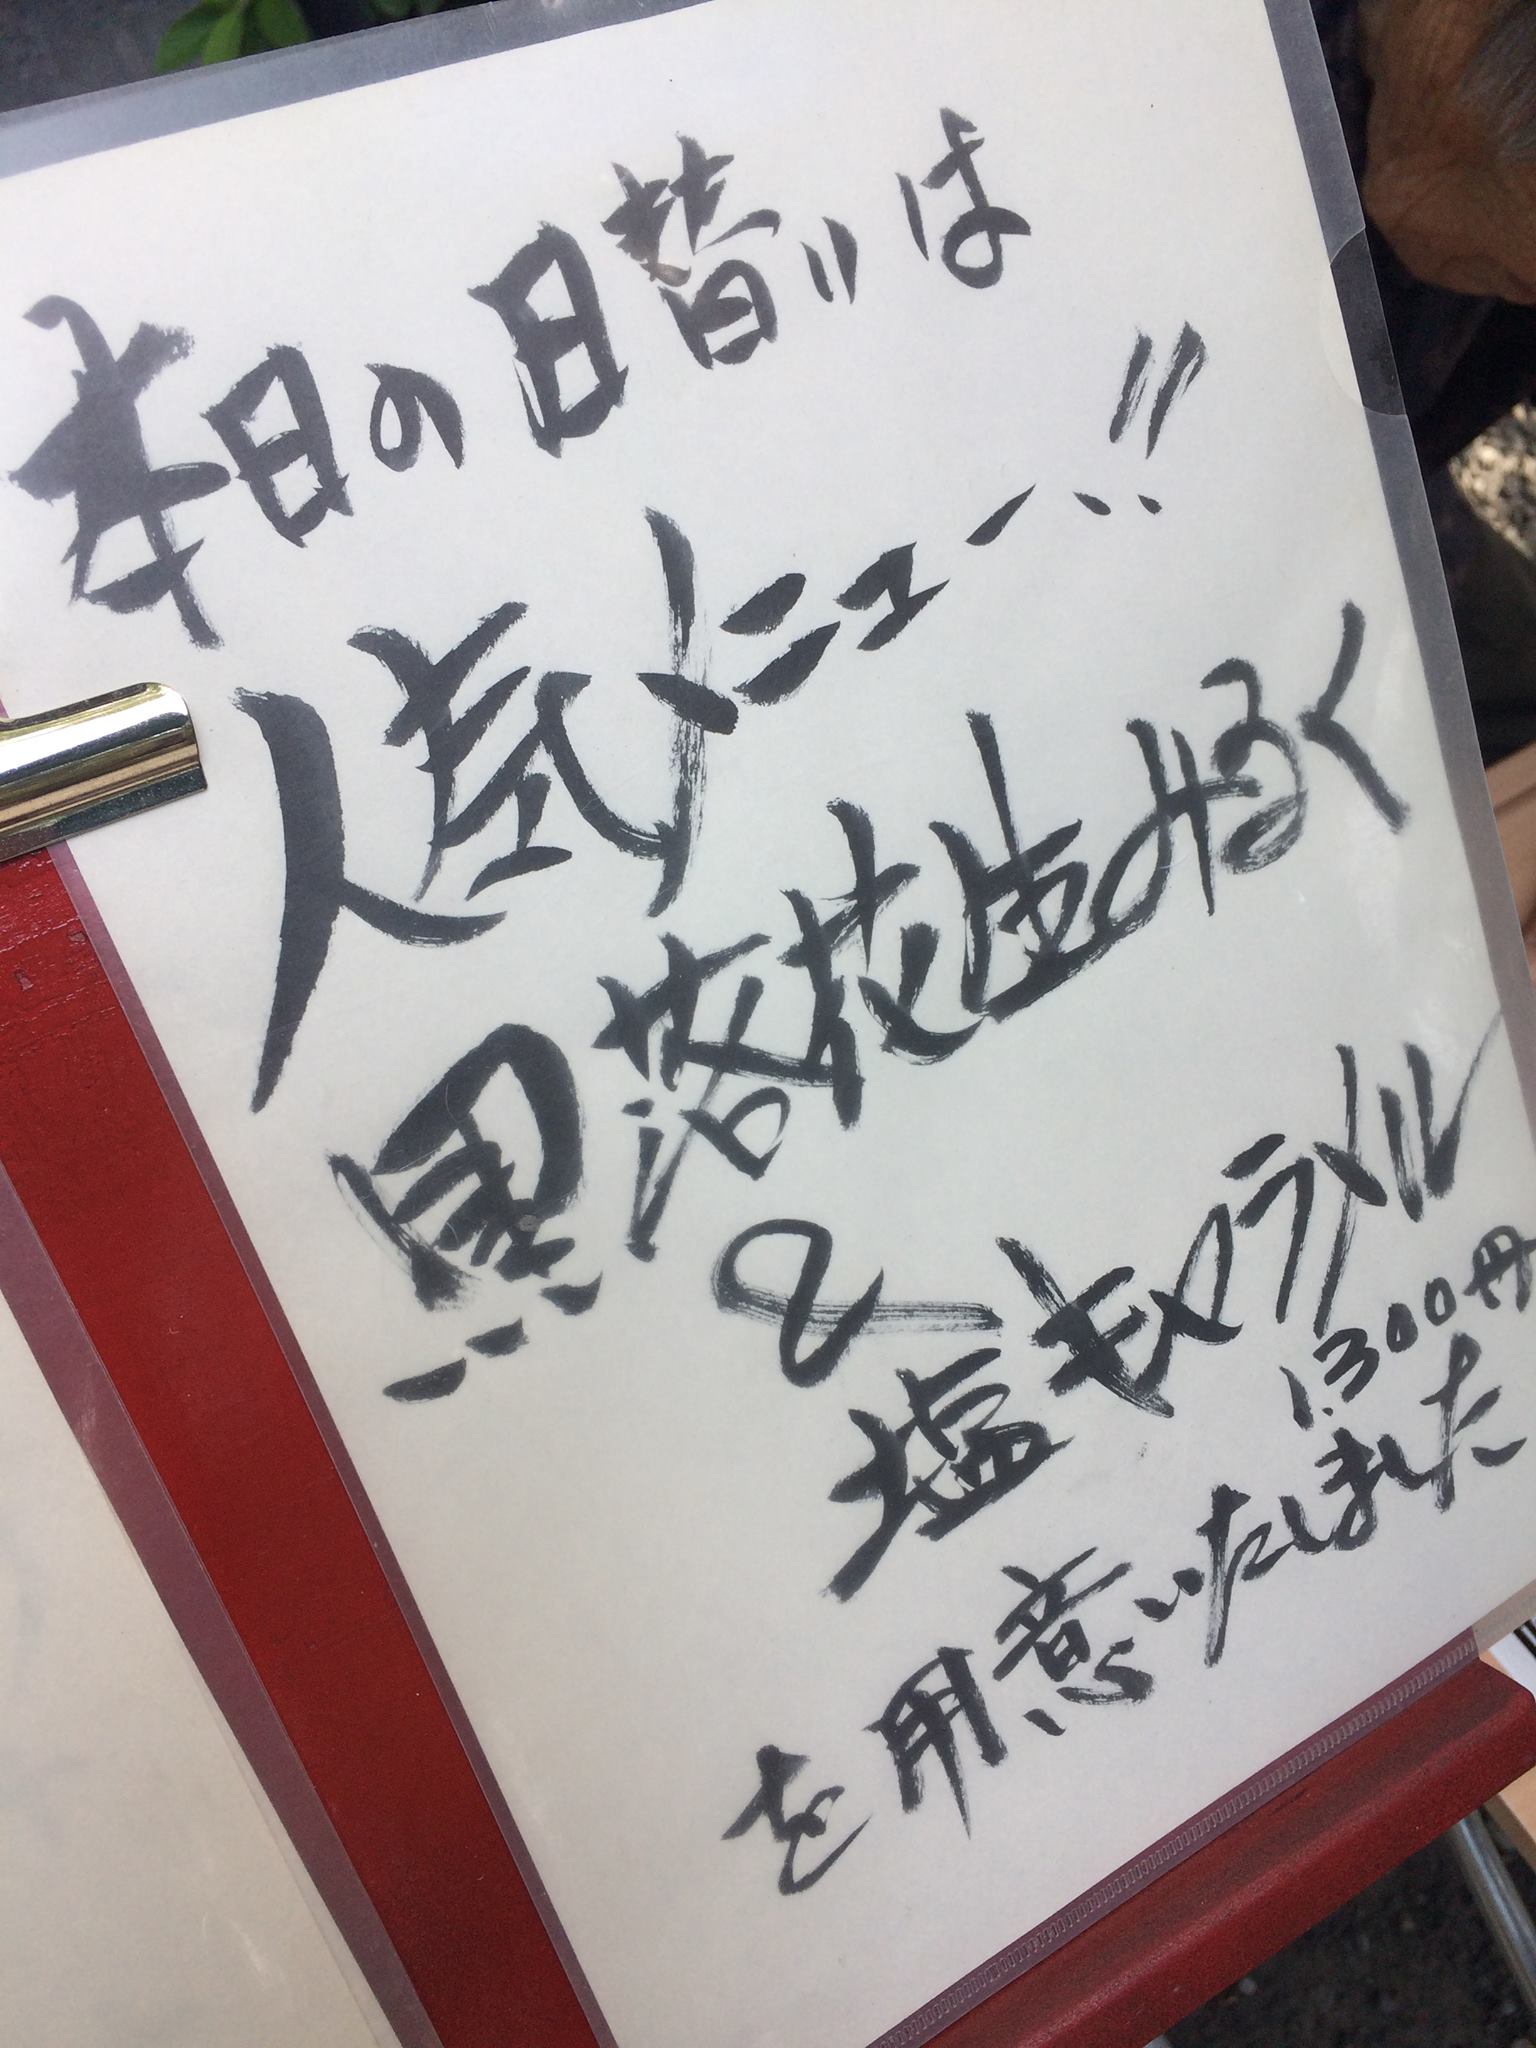 本日の日替りは
人気メニュー!!
黒落花生みるく
&
塩キャラメル
1.300円
を用意いたしました